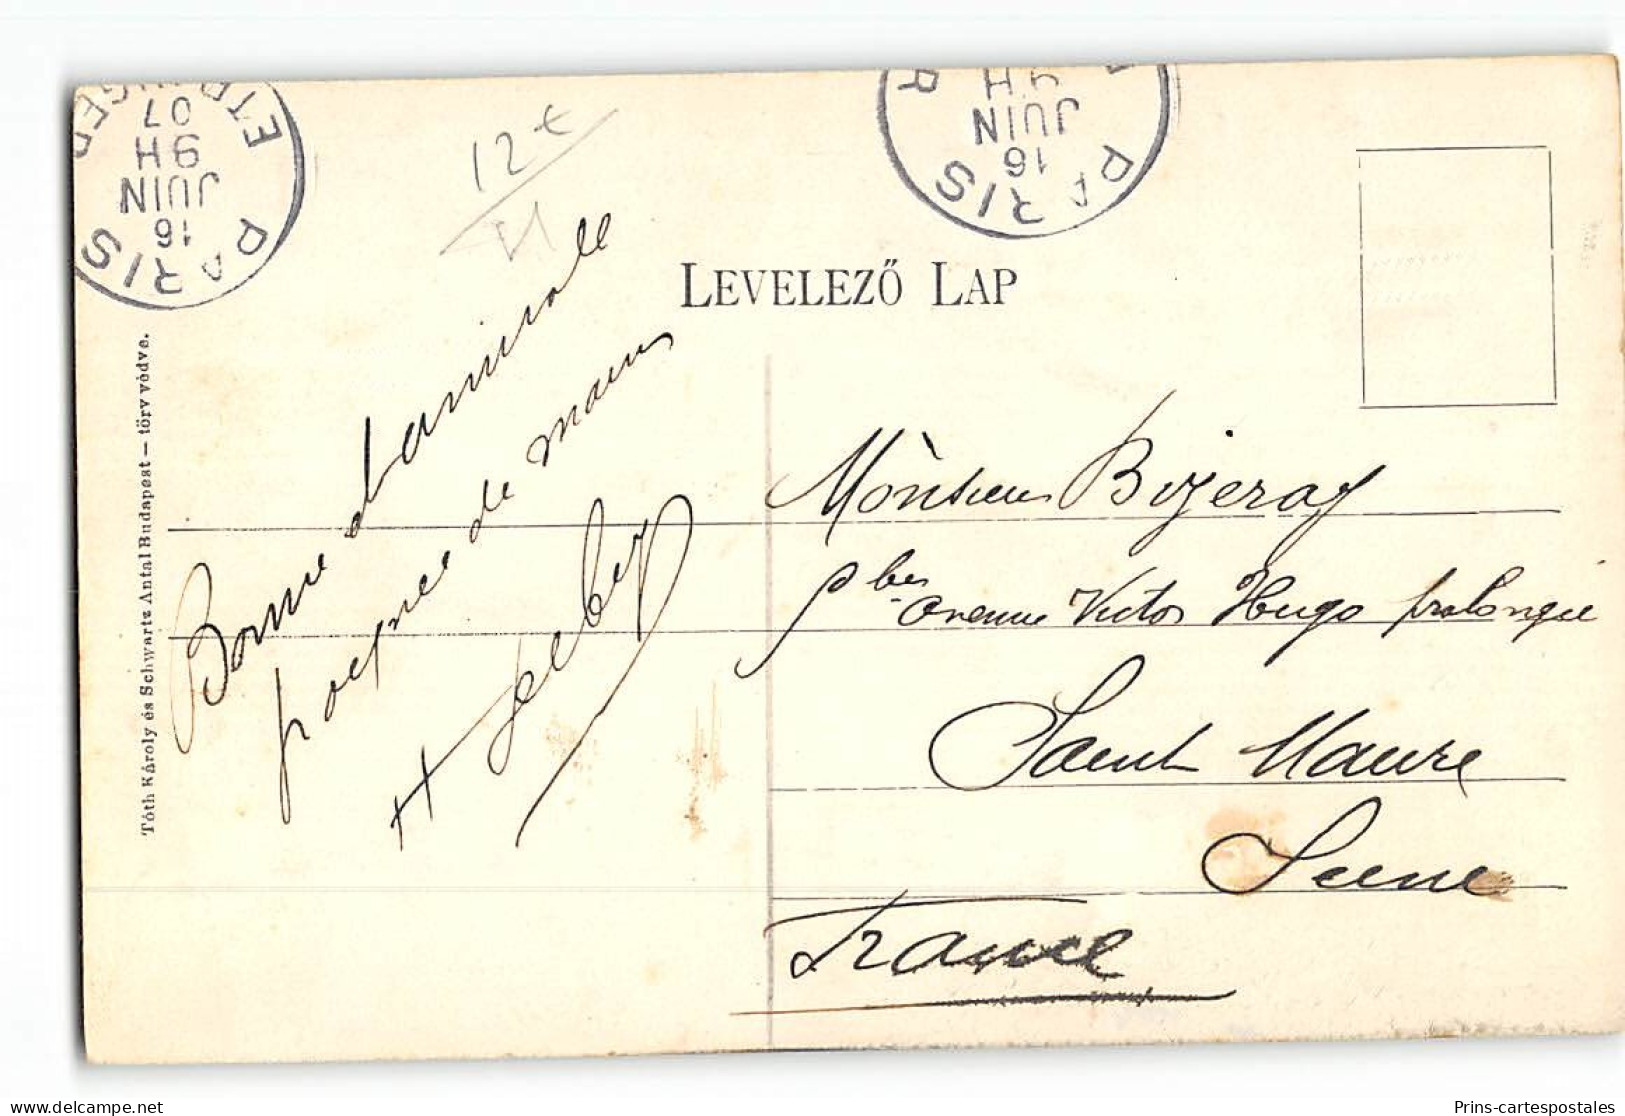 PARIS
16
JUIN
9H
07
ETRANGER
PARIS
16
JUIN
9H
12 €
LEVELEZŐ LAP
Tóth Károly és Schwartz Antal Budapest — törv védve.
Bonne d'amicale
poignée de mains
Monsieur Bijeray
9 bis avenue Victor Hugo prolongée
Saint Maure
Seine
France
delcampe.net
Prins-cartespostales